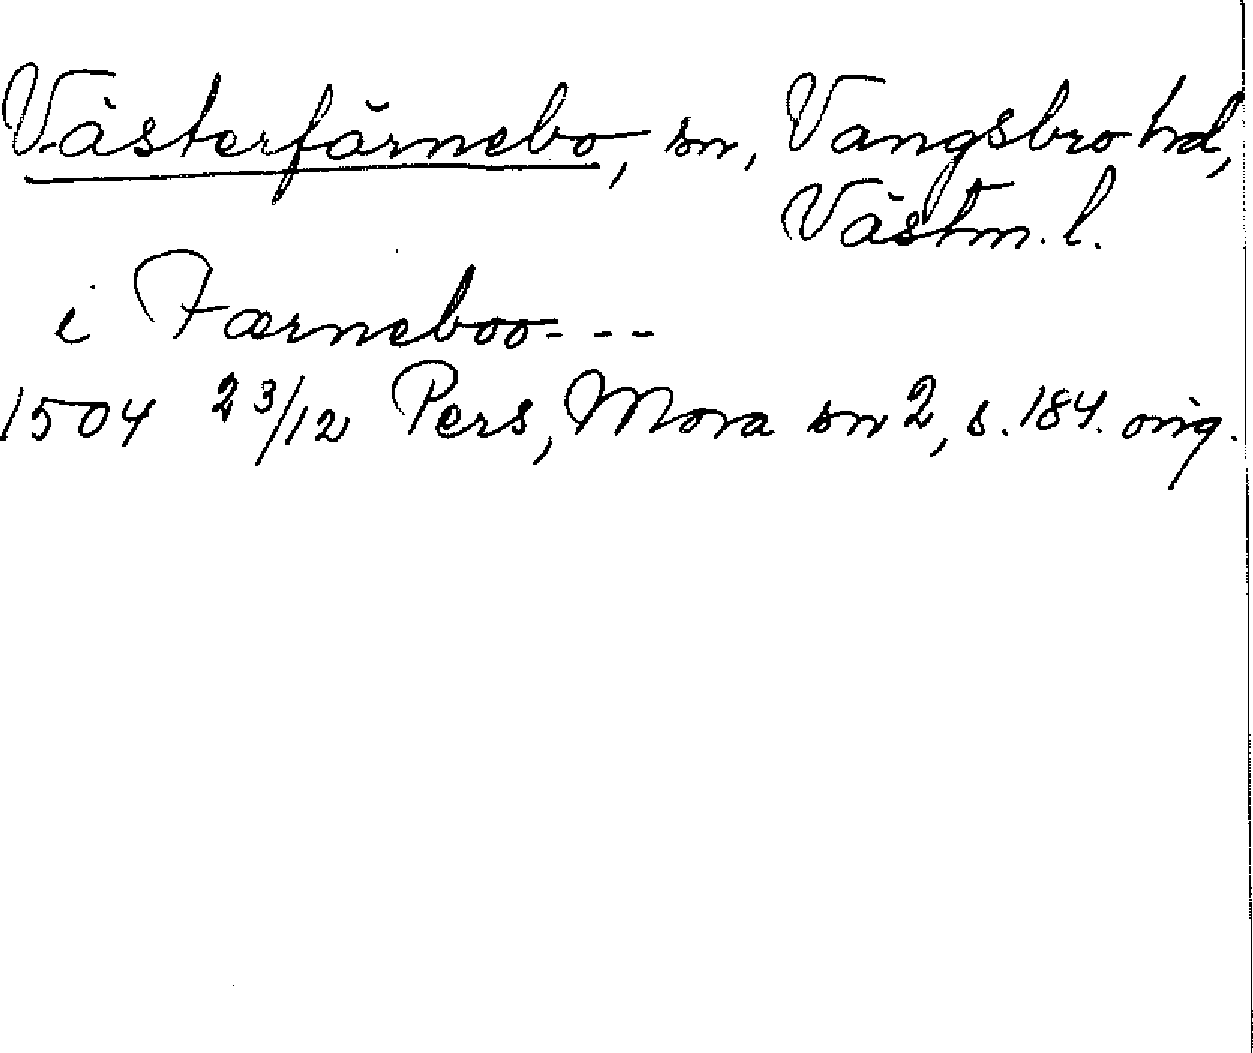 Västerfärnebo, sn, Vangsbro hd,
Västm. l.
i Færneboo - - -
1504 23/12 Pers, Mora sn 2, s. 184. orig.